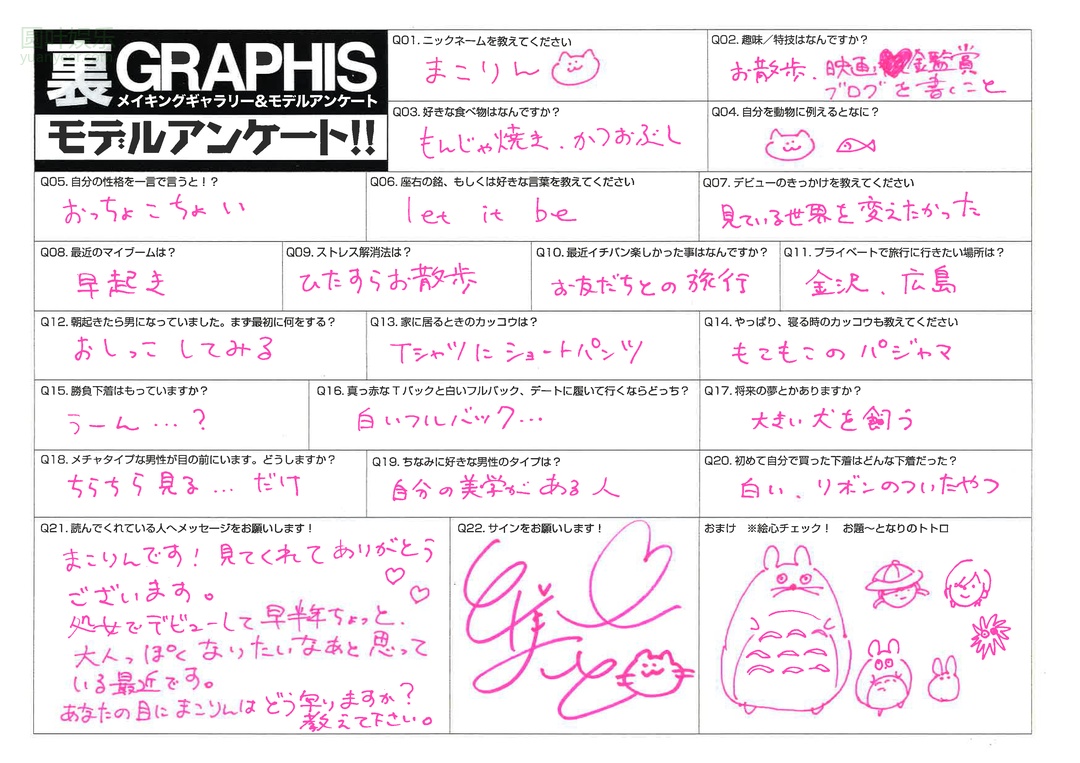 圆叶娱乐
裏GRAPHIS
メイキングギャラリー&モデルアンケート
モデルアンケート!!
Q01. ニックネームを教えてください
まこりん
Q02. 趣味／特技はなんですか？
お散歩、映画 鑑賞
ブログを書くこと
Q03. 好きな食べ物はなんですか？
もんじゃ焼き、かつおぶし
Q04. 自分を動物に例えるとなに？
Q05. 自分の性格を一言で言うと！？
おっちょこちょい
Q06. 座右の銘、もしくは好きな言葉を教えてください
let it be
Q07. デビューのきっかけを教えてください
見ている世界を変えたかった
Q08. 最近のマイブームは？
早起き
Q09. ストレス解消法は？
ひたすらお散歩
Q10. 最近イチバン楽しかった事はなんですか？
お友だちとの旅行
Q11. プライベートで旅行に行きたい場所は？
金沢、広島
Q12. 朝起きたら男になっていました。まず最初に何をする？
おしっこしてみる
Q13. 家に居るときのカッコウは？
Tシャツにショートパンツ
Q14. やっぱり、寝る時のカッコウも教えてください
もこもこのパジャマ
Q15. 勝負下着はもっていますか？
うーん…？
Q16. 真っ赤なTバックと白いフルバック、デートに履いて行くならどっち？
白いフルバック…
Q17. 将来の夢とかありますか？
大きい犬を飼う
Q18. メチャタイプな男性が目の前にいます。どうしますか？
ちらちら見る…だけ
Q19. ちなみに好きな男性のタイプは？
自分の美学がある人
Q20. 初めて自分で買った下着はどんな下着だった？
白い、リボンのついたやつ
Q21. 読んでくれている人へメッセージをお願いします！
まこりんです！見てくれてありがとう
ございます。
処女でデビューして早半年ちょっと、
大人っぽくなりたいなあと思って
いる最近です。
あなたの目にまこりんはどう写りますか？
教えて下さい。
Q22. サインをお願いします！
おまけ ※絵心チェック！ お題〜となりのトトロ